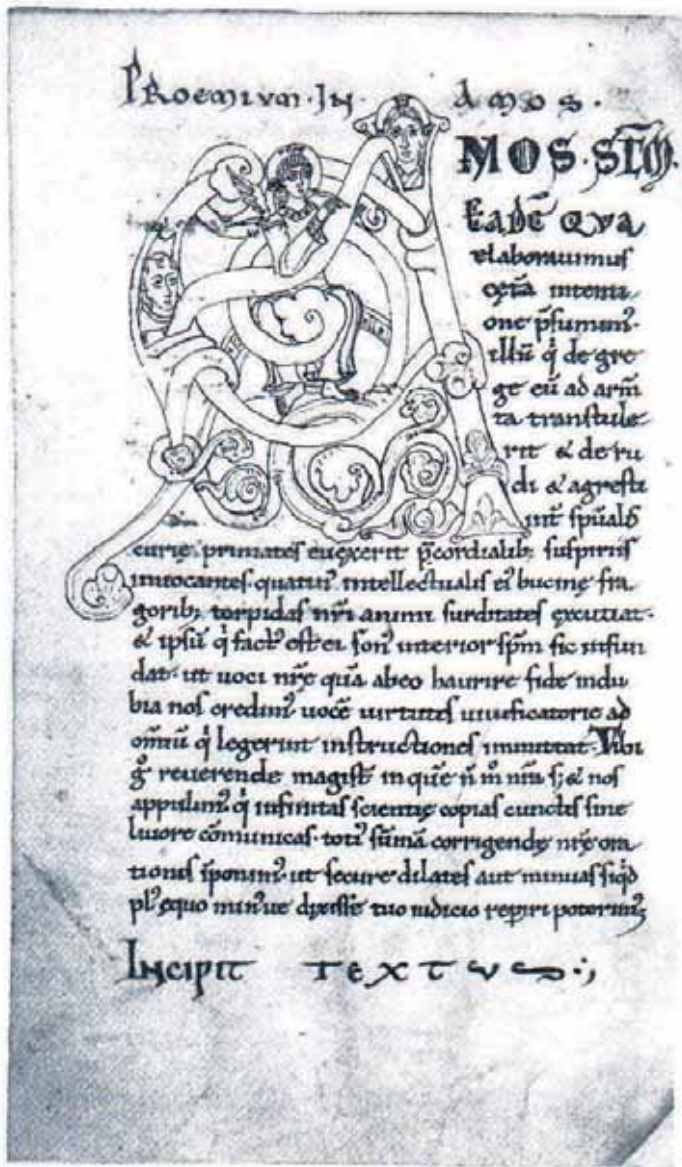 PROEMIUM · IN · AMOS ·
AMOS · SCM̄ ·
EADĒ QVA
elaborauimus
cet̄a intenti
one p̄sumim᷒ ·
illū q̇ de gre
ge eū ad arm̄
ta transtule
rit & de ru
di & agresti
int̄ sp̄ualꝭ
curię primates euexerit p̄cordialib; suspiriis
inuocantes quatin᷒ intellectualis ei᷒ bucinę fra
gorib; torpidas nr̄i animi surditates excutiat ·
& ipsū q̇ fact᷒ est ei son᷒ interior sp̄m sic infun
dat · ut uoci nr̄e quā abeo haurire fide indu
bia nos credim᷒ uocē uirtutis uiuificatorie ad
om̄iū q̇ legerint instructiones inmittat · Tibi
g̊ reuerende magist̄ in quē n̄ m̊ nm̄a s; & nos
appulim᷒ q̇ infinitas scientię copias cunctis sine
liuore cōmunicas · toti᷒ sūmā corrigendę nr̄e ora
tionis īponim᷒ · ut secure dilates aut minuas siqd
pl᷒ ęquo min᷒ue dixisse tuo iudicio rep̄iri poterim᷒
INCIPIT TEXTUS · ;